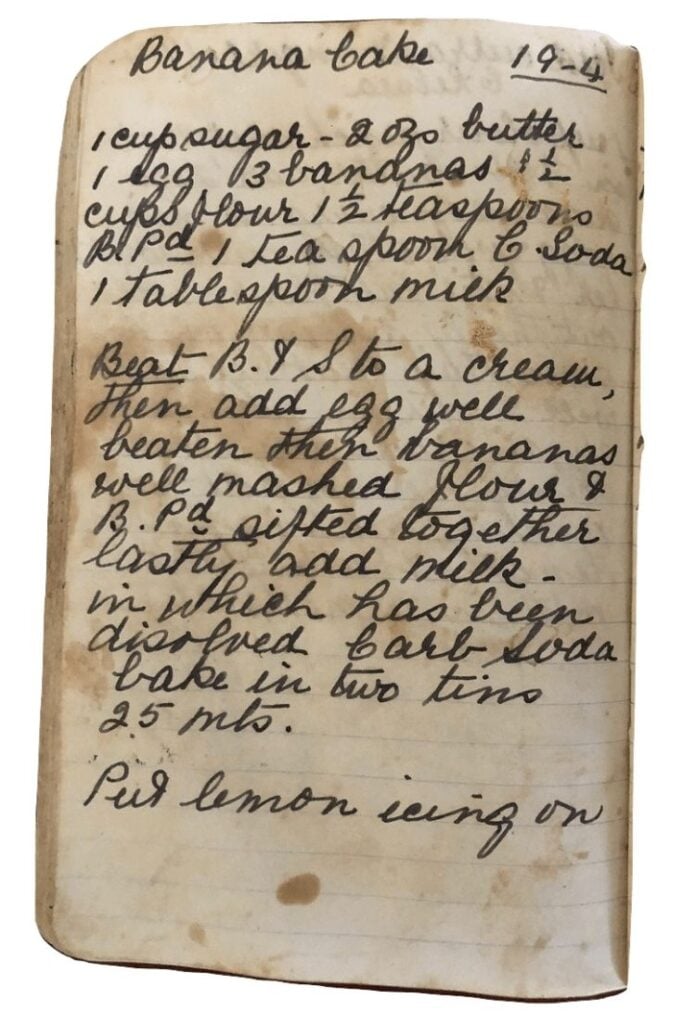 Banana Cake 19-4
1 cup sugar - 2 ozs butter
1 egg 3 bananas 1 ½
cups flour 1 ½ teaspoons
B. Pd 1 tea spoon C. Soda
1 tablespoon milk
Beat B. & S to a cream,
then add egg well
beaten then bananas
well mashed flour &
B. Pd sifted together
lastly add milk -
in which has been
disolved Carb Soda
bake in two tins
25 mts.
Put lemon icing on